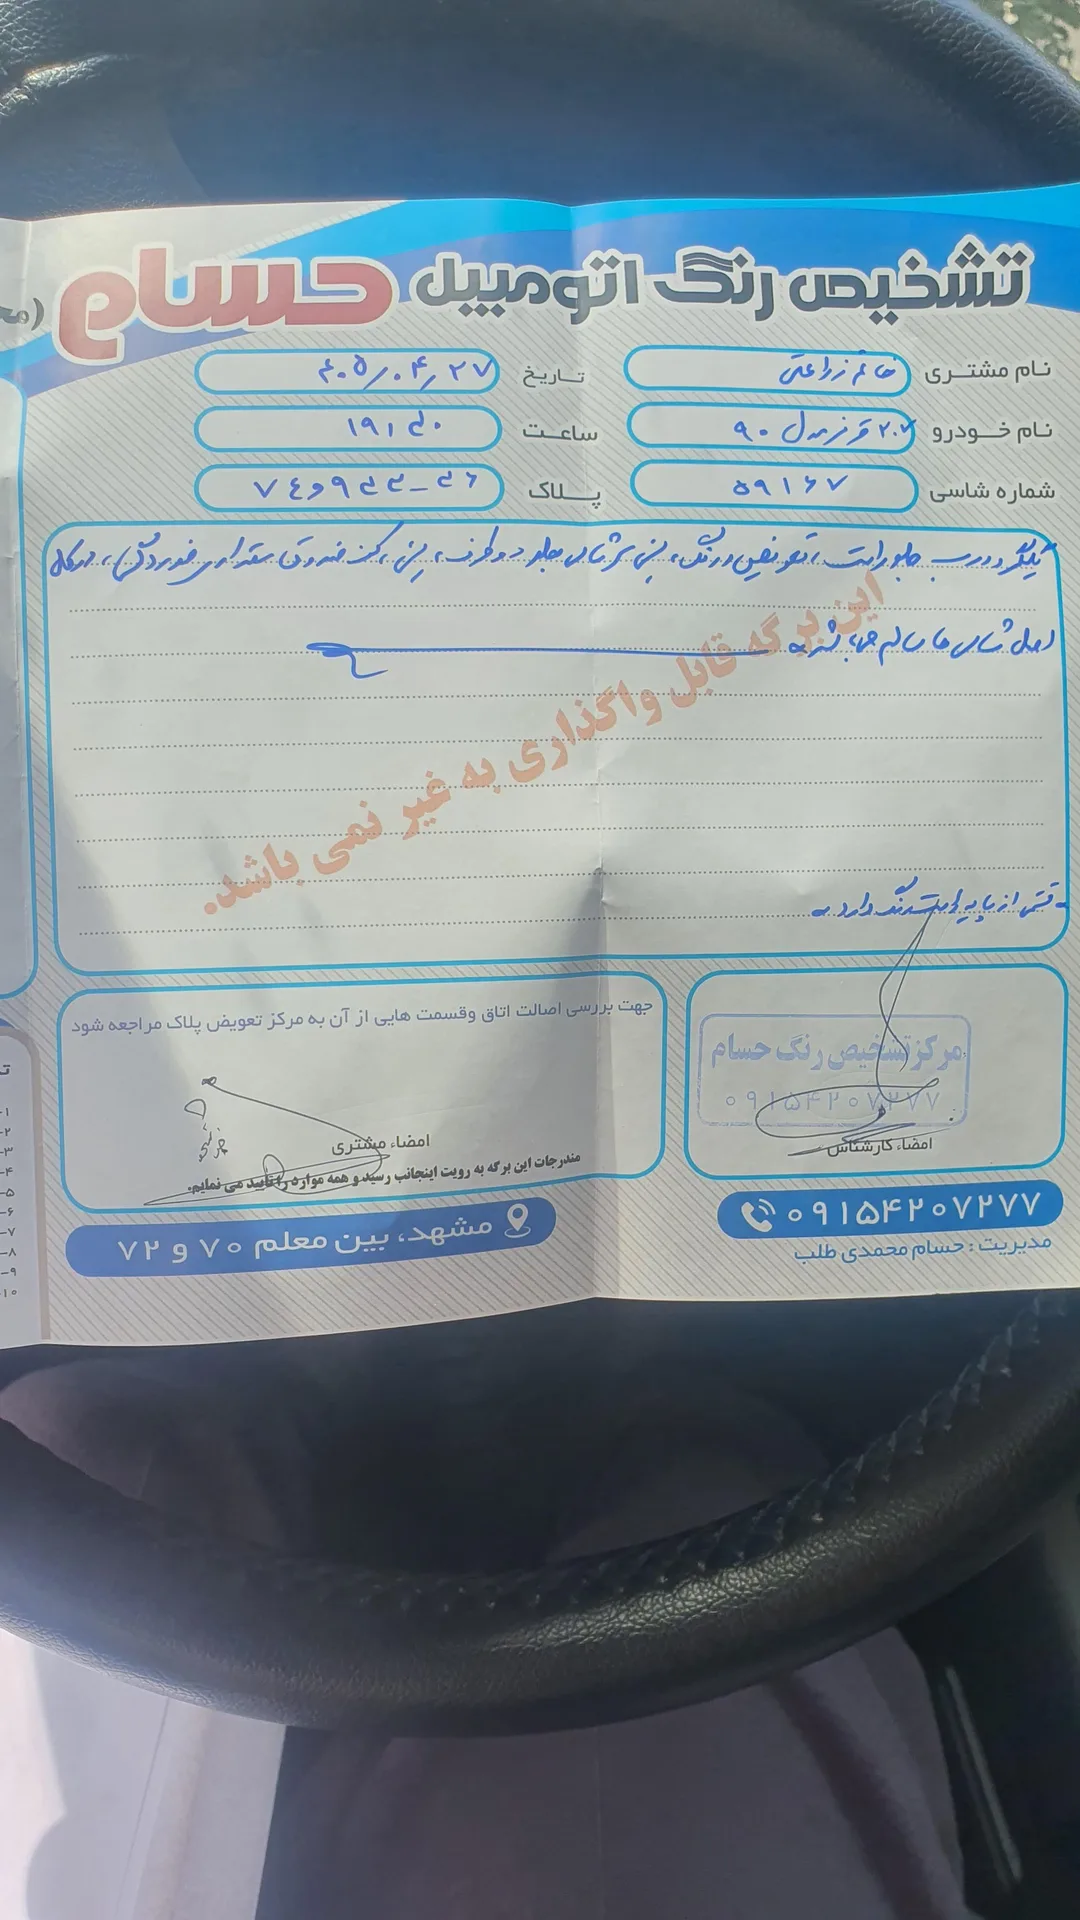 تشخیص رنگ اتومبیل حسام
نام مشتری خانم زراعتی
تاریخ ۴۰۵٫۰۴٫۲۷
نام خودرو ۲۰۷ قرمز مدل ۹۰
ساعت ۱۹٫۳۰
شماره شاسی ۵۹۱۶۷
پلاک
گلگیر و درب جلو راست، تعویض و رنگ، سینی جلو دو طرف، سینی، کف صندوق مقداری خوردگی، در کل
اصل شاسی ها سالم می باشد
این برگه قابل واگذاری به غیر نمی باشد.
قسمتی از پایه راست رنگ دارد
جهت بررسی اصالت اتاق وقسمت هایی از آن به مرکز تعویض پلاک مراجعه شود
مرکز تشخیص رنگ حسام
۰۹۱۵۴۲۰۷۲۷۷
امضاء کارشناس
امضاء مشتری
مندرجات این برگه به رویت اینجانب رسید و همه موارد را تأیید می نمایم.
۰۹۱۵۴۲۰۷۲۷۷
مدیریت : حسام محمدی طلب
مشهد، بین معلم ۷۰ و ۷۲
۱-
۲-
۳-
۴-
۵-
۶-
۷-
۸-
۹-
۱۰-